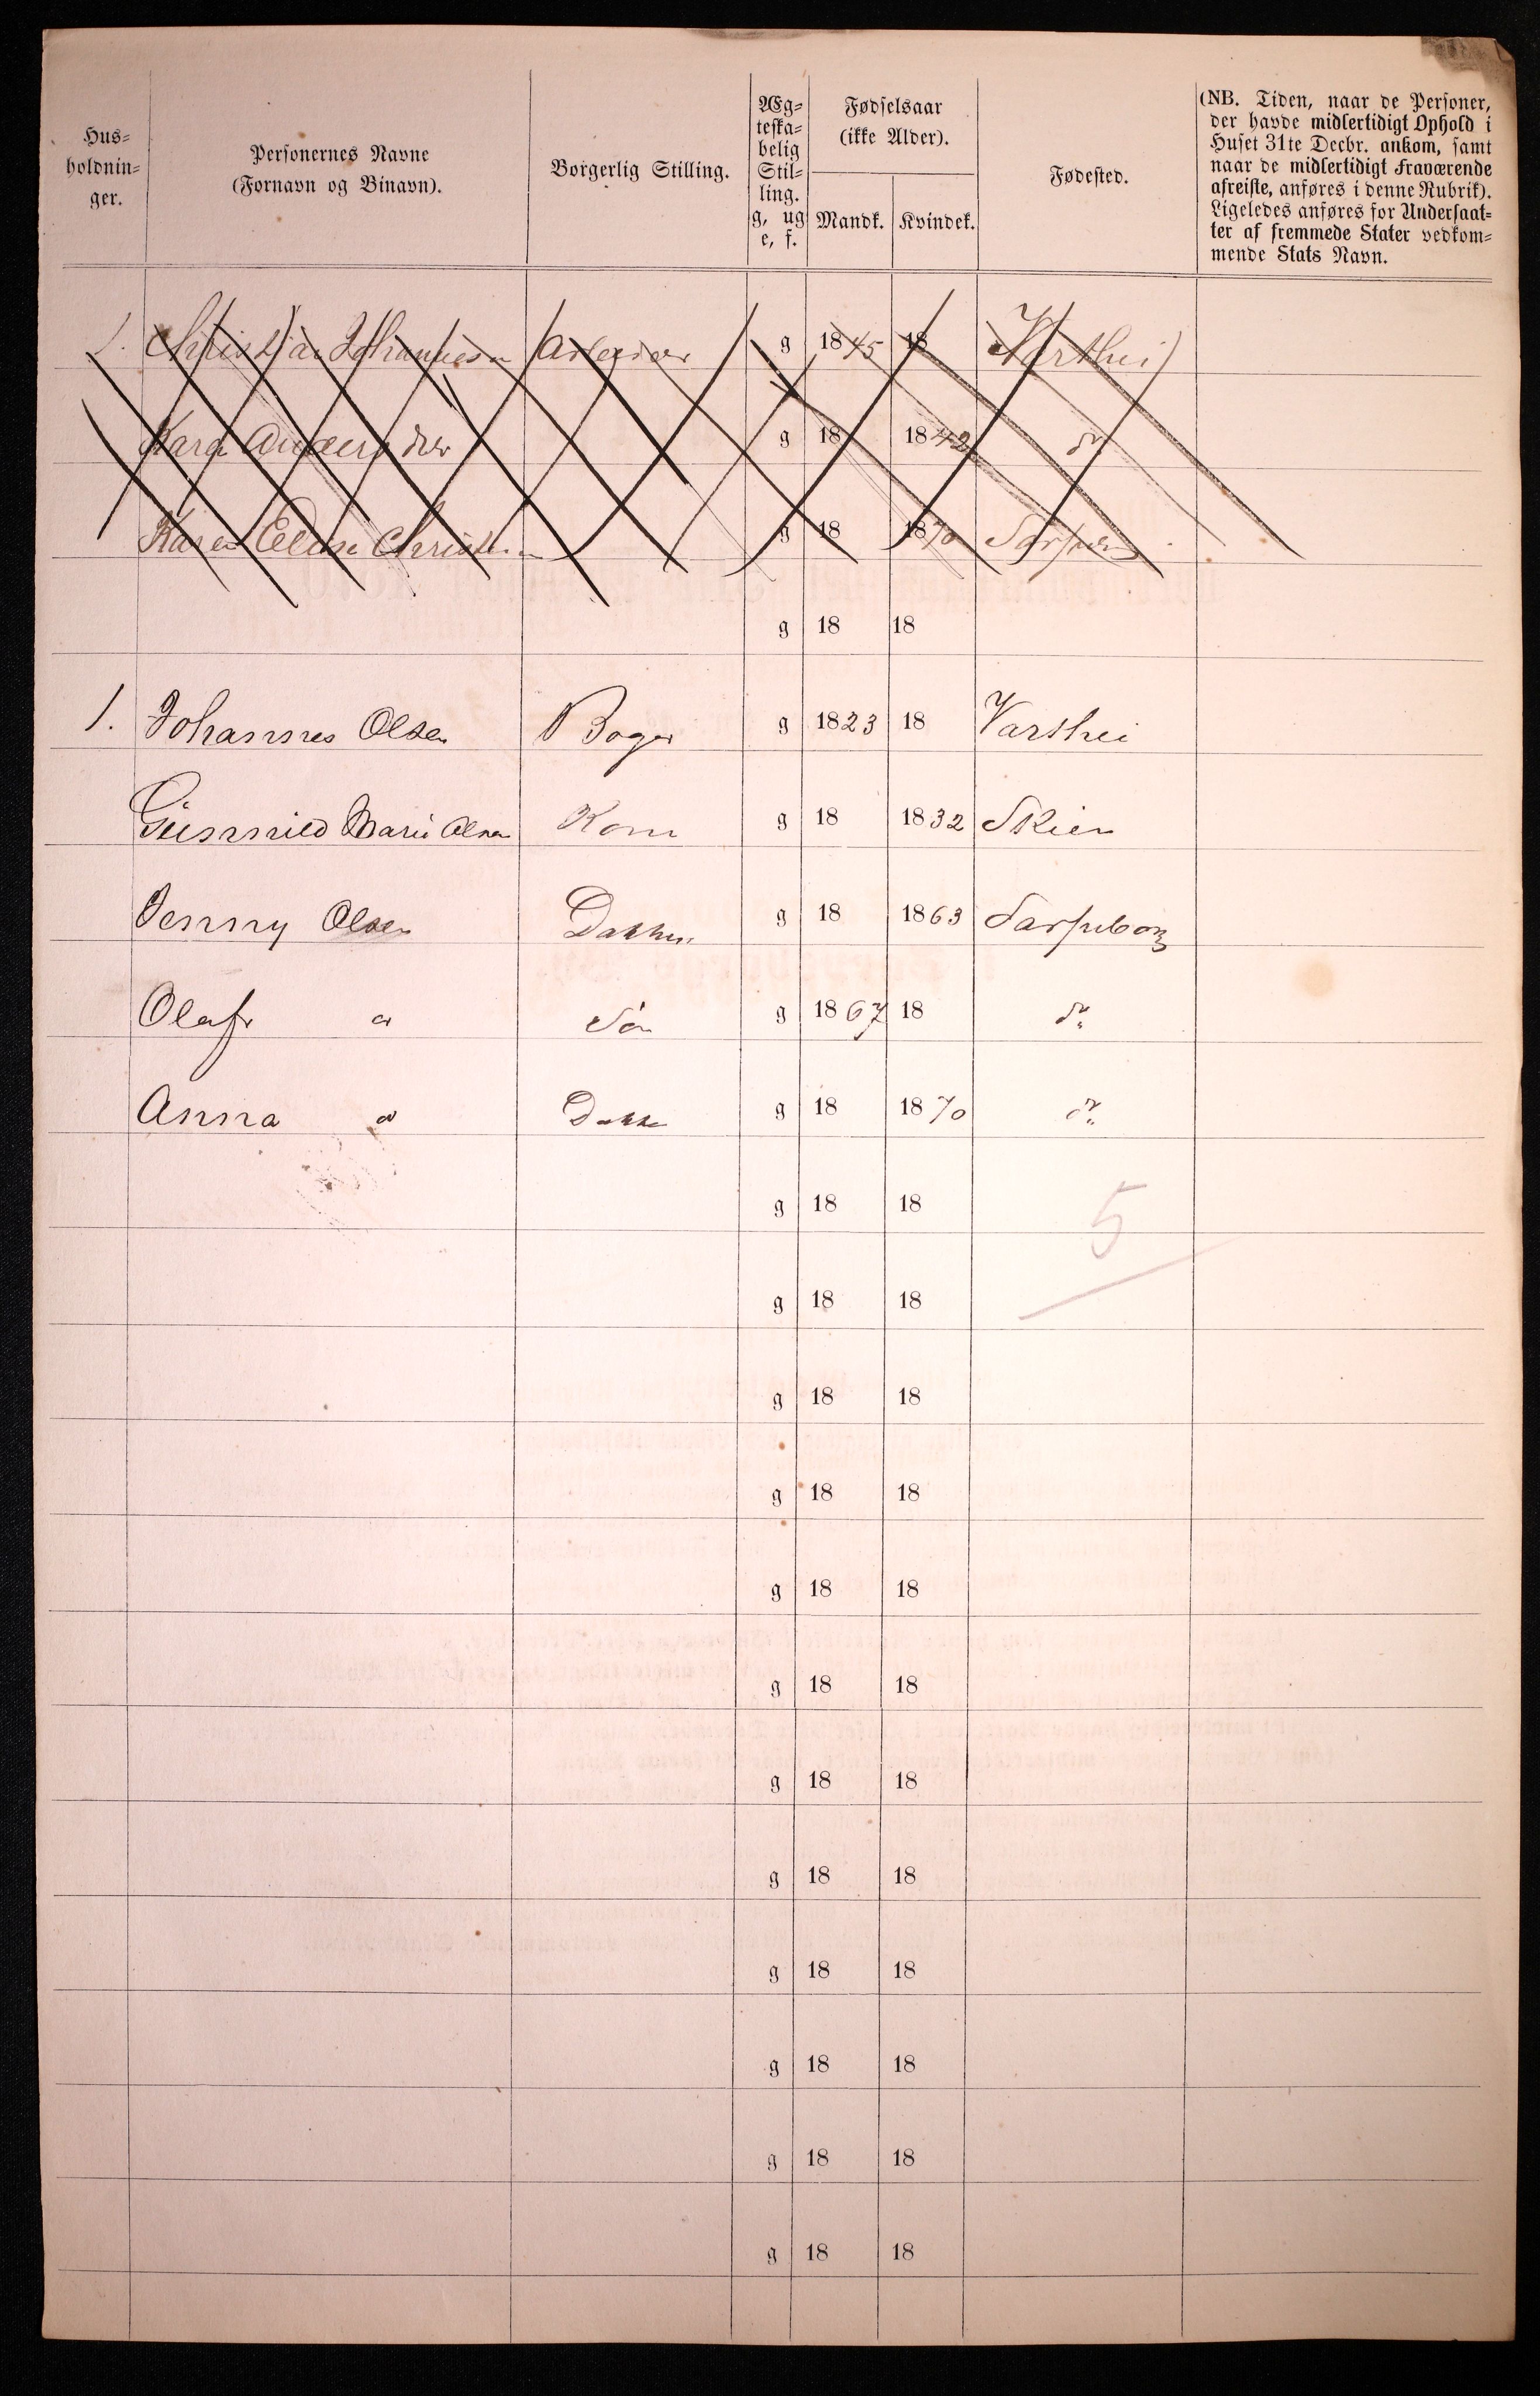 Hus=
holdnin=
ger.
Personernes Navne
(Fornavn og Binavn).
Borgerlig Stilling.
Æg=
teska=
belig
Stil=
ling.
g, ug
e, f.
Fødselsaar
(ikke Alder).
Mandk. Kvindek.
Fødested.
(NB. Tiden, naar de Personer,
der havde midlertidigt Ophold i
Huset 31te Decbr. ankom, samt
naar de midlertidigt Fraværende
afreiste, anføres i denne Rubrik).
Ligeledes anføres for Undersaat=
ter af fremmede Stater vedkom=
mende Stats Navn.
1. Christian Johannesen Arbeider g 1845 18
Kara Andersdter g 18 1842 do
Karen Elise g 18 1870
g 18 18
1. Johannes Olsen Bager g 1823 18 Varthei
Gunnild Marie Olsen Kone g 18 1832 Skien
Jenny Olsen Datter g 18 1863 Sarpsborg
Olaf do Søn g 1867 18 do
Anna do Datter g 18 1870 do
g 18 18
5
g 18 18
g 18 18
g 18 18
g 18 18
g 18 18
g 18 18
g 18 18
g 18 18
g 18 18
g 18 18
g 18 18